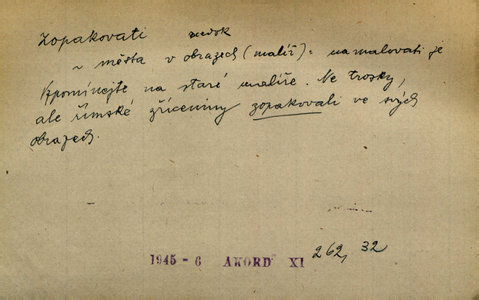 Zopakovati nedok
~ města v obrazech (malíř): namalovati je
Vzpomínejte na staré malíře. Ne trosky,
ale římské zříceniny zopakovali ve svých
obrazech.
1945 - 6 AKORD XI 262, 32